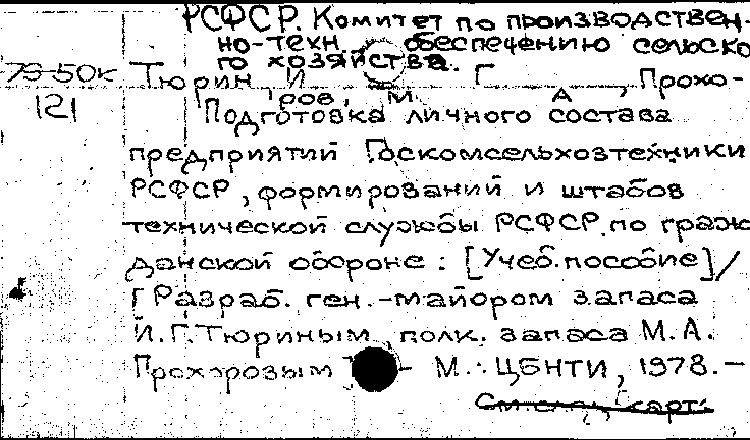 РСФСР. Комитет по производствен-
но-техн. обеспечению сельско
го хозяйства.
79-50к Тюрин, И. Г., Прохо-
121 ров, М. А.
Подготовка личного состава
предприятий Госкомсельхозтехники
РСФСР, формирований и штабов
технической службы РСФСР по граж
данской обороне : [Учеб. пособие] /
[Разраб. ген.-майором запаса
И.Г. Тюриным, полк. запаса М.А.
Прохоровым] - М. : ЦБНТИ, 1978. -
См. след. карт.